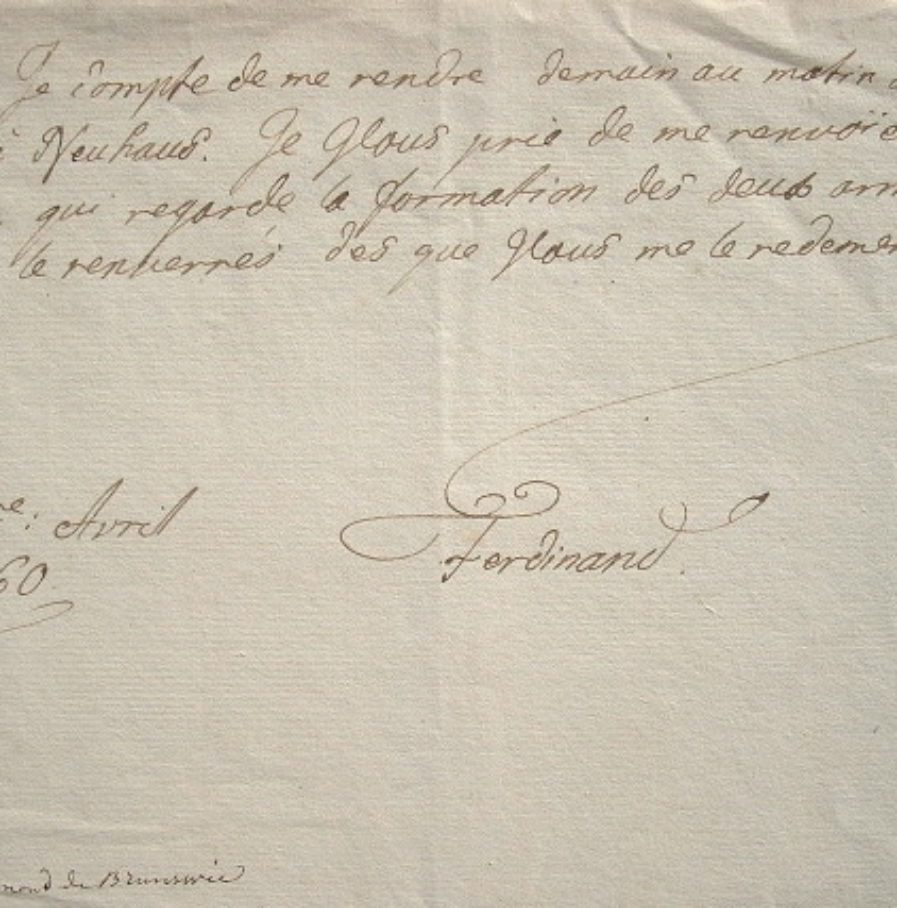 Je compte de me rendre demain au matin
à Neuhaus. Je Vous prie de me renvoïe
qui regarde la formation des deux arm
le renverrés des que Vous me le redeme
re: Avril
60
Ferdinand.
mond de Brunswic